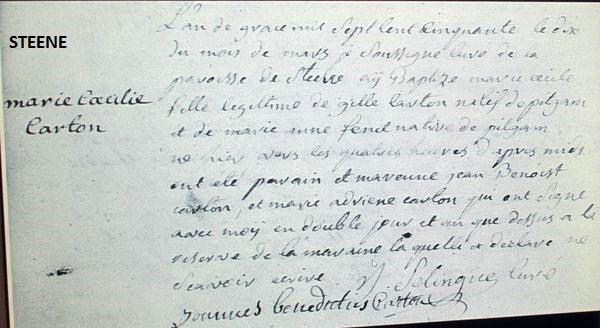 STEENE
marie Cœcilie
Carton
L'an de grace mil sept cent cinquante le dix
du mois de mars je soussigne curé de la
paroisse de Steene aÿ Baptize marie cecile
fille legitime de gille Carton natif de pitgam
et de marie anne fenet native de pitgam
ne hier vers les quatres heures d'apres midi
ont été parain et mareine jean Benoist
carton, et marie adriene carton qui ont signé
avec moÿ en double jour et an que dessus a la
reserve de la maraine la quelle a declaré ne
sçavoir ecrire Selingue curé
Joannes benedictus Carton